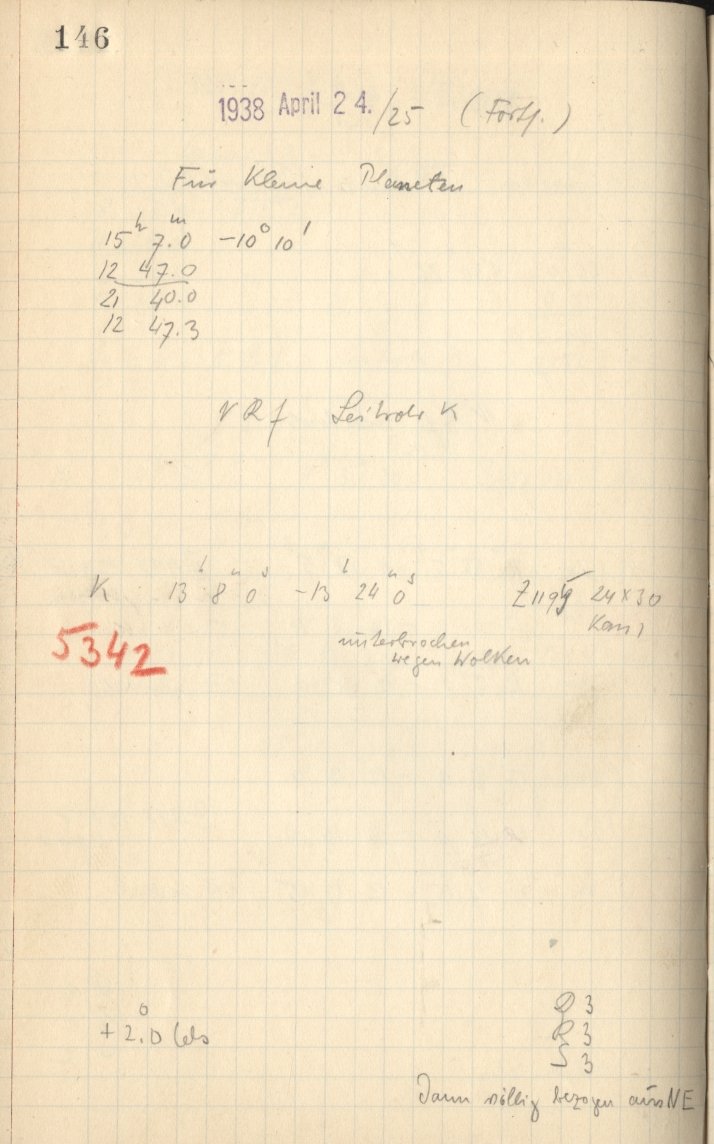 146
1938 April 24./25 (Forts.)
Für Kleine Planeten
15ʰ 7.0ᵐ −10° 10'
12 47.0
21 40.0
12 47.3
V R f Leitrohr K
K 13ʰ 8ᵐ 0ˢ −13ʰ 24ᵐ 0ˢ Z 1199 24×30
5342
unterbrochen
wegen Wolken
+2.0° Cels
Q 3
R 3
S 3
Dann völlig bezogen aus NE